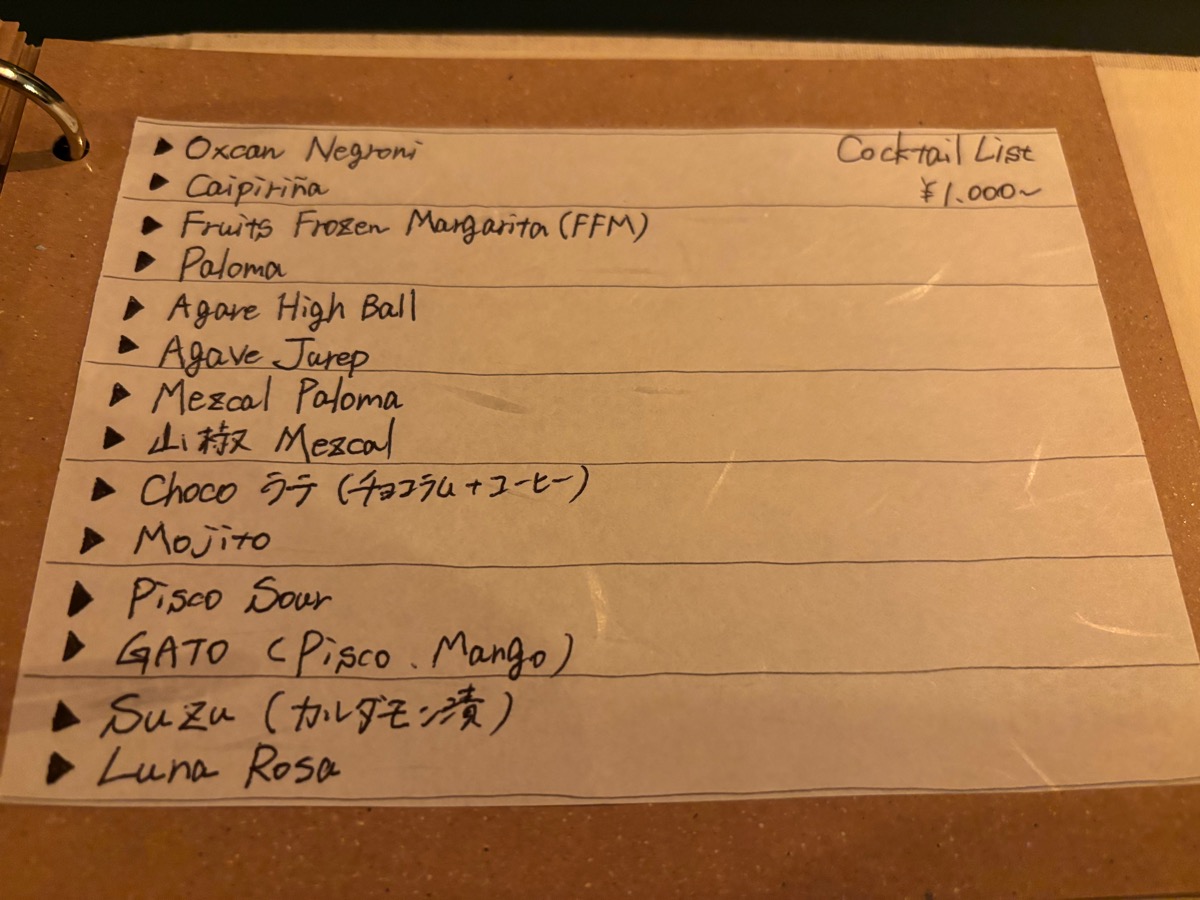 Oxcan Negroni
Cocktail List
Caipiriña
¥1.000~
Fruits Frozen Margarita (FFM)
Paloma
Agave High Ball
Agave Jurep
Mezcal Paloma
山椒 Mezcal
Choco ラテ (チョコラム + コーヒー)
Mojito
Pisco Sour
GATO (Pisco、Mango)
Suzu (カルダモン漬)
Luna Rosa